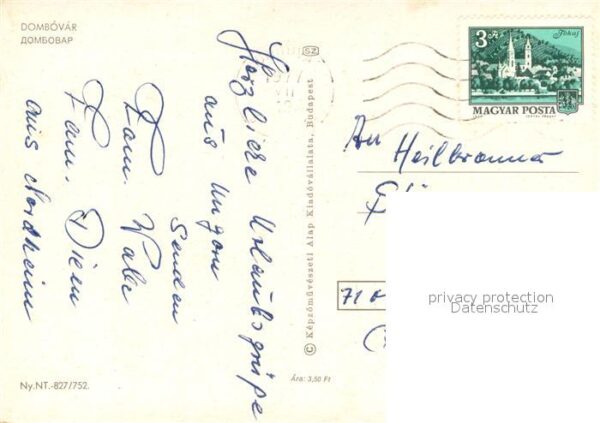 DOMBÓVÁR
ДОМБОВАР
Herzliche Urlaubsgrüße
aus Ungarn
senden
Fam. Wabe
Fam. Dien
aus Nordheim
Ny.NT.-827/752.
© Képzőművészeti Alap Kiadóvállalata, Budapest
Ára: 3,50 Ft
SZ
3 Ft
Tokaj
MAGYAR POSTA
An Heilbronner
71
privacy protection
Datenschutz